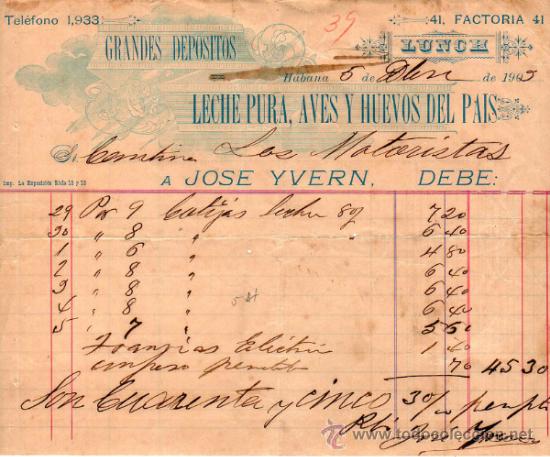 39
Teléfono 1,933
GRANDES DEPOSITOS
41, FACTORIA 41
LUNCH
Habana 5 de Dbre de 1905
LECHE PURA, AVES Y HUEVOS DEL PAIS
Sr. Cantina Los Motoristas
Imp. La Exposición Ricla 12 y 13
A JOSE YVERN, DEBE:
29 Por 9 Botijas leche 80 7 20
30 " 8 " 6 40
1 " 6 " 4 80
2 " 8 6 40
3 " 8 6 40
4 " 8 6 40
5 " 7 5 60
1 40
70 45 30
Son Cuarenta y cinco 30/00
Rbi José Yvern
todocoleccion.net